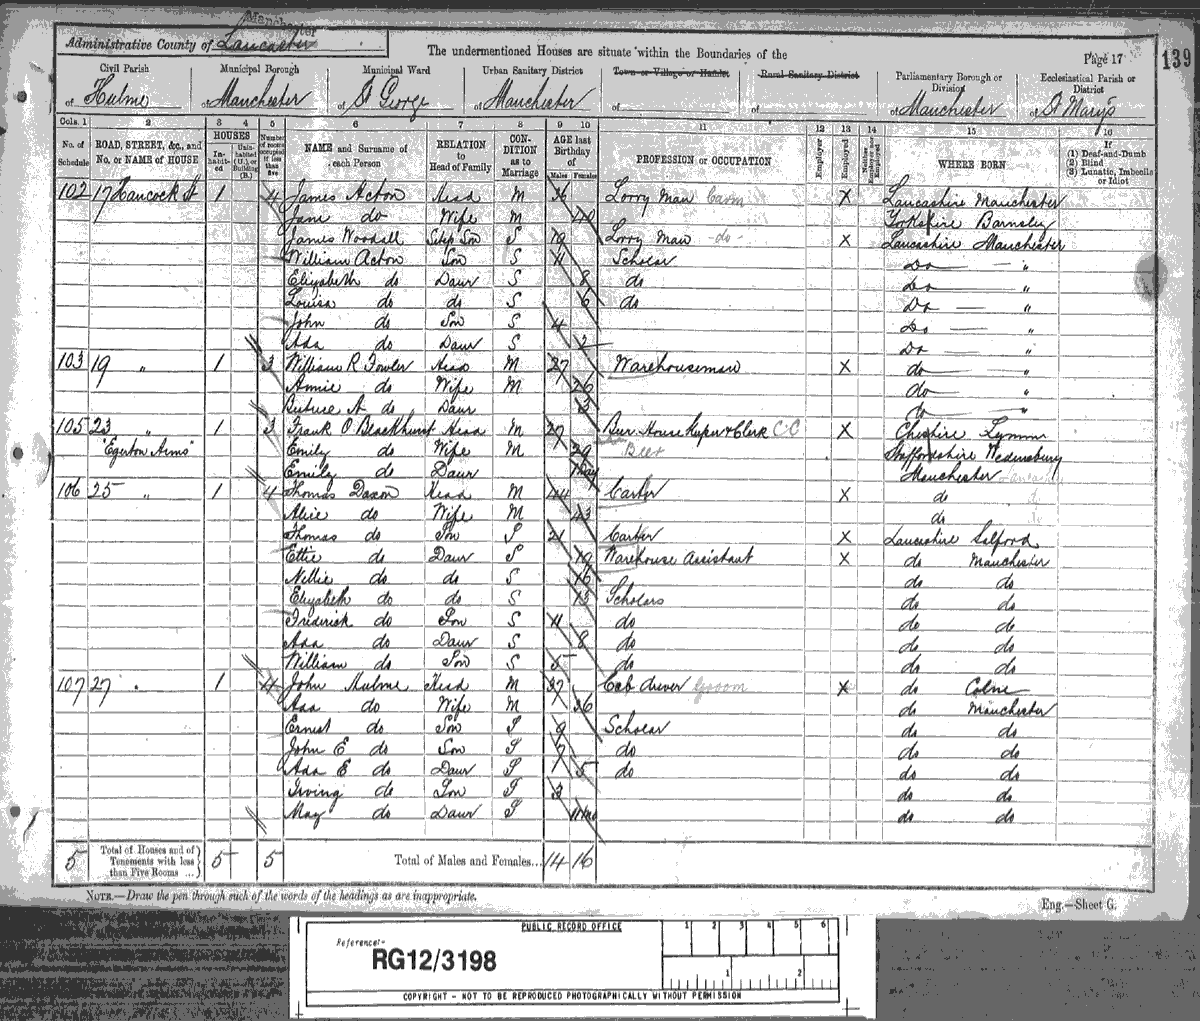 Manchester
Administrative County of Lancaster
The undermentioned Houses are situate within the Boundaries of the
Page 17
139
Civil Parish
of Hulme
Municipal Borough
of Manchester
Municipal Ward
of St George
Urban Sanitary District
of Manchester
Town or Village or Hamlet
of
Rural Sanitary District
of
Parliamentary Borough or Division
of Manchester
Ecclesiastical Parish or District
of St Mary's
Cols. 1 2 3 4 5 6 7 8 9 10 11 12 13 14 15 16
No. of Schedule
ROAD, STREET, &c., and No. or NAME of HOUSE
HOUSES
In-habit-ed
Unin-habited (U.) or Building (B.)
Number of rooms occupied if less than five
NAME and Surname of each Person
RELATION to Head of Family
CON-DITION as to Marriage
AGE last Birthday of
Males Females
PROFESSION or OCCUPATION
Employer
Employed
Neither Employer nor Employed
WHERE BORN
If
(1) Deaf-and-Dumb
(2) Blind
(3) Lunatic, Imbecile or Idiot
102 17 Hancock St 1 4 James Acton Head M 36 Lorry Man Carm X Lancashire Manchester
Jane do Wife M 40 Yorkshire Barnsley
James Woodall Step Son S 19 Lorry Man do X Lancashire Manchester
William Acton Son S 11 Scholar Do "
Elizabeth do Daur S 8 do Do "
Louisa do do S 6 do Do "
John do Son S 4 Do "
Ada do Daur S 2 Do "
103 19 " 1 3 William R Fowler Head M 27 Warehouseman X do "
Annie do Wife M 26 do "
A do Daur 3 do "
105 23 " 1 3 Frank O Blackhurst Head M 29 Beer House Keeper & Clerk CC X Cheshire Lymm
"Egerton Arms" Emily do Wife M 29 Beer Staffordshire Wednesbury
Emily do Daur Manchester
106 25 " 1 4 Thomas Daxon Head M 44 Carter X do
Alice do Wife M 43 do
Thomas do Son S 21 Carter X Lancashire Salford
Ettie do Daur S 19 Warehouse Assistant X do Manchester
Nellie do do S 16 do do
Elizabeth do do S 13 Scholars do do
Frederick do Son S 11 do do do
Ada do Daur S 8 do do do
William do Son S 5 do do do
107 27 " 1 4 John Hulme Head M 37 Cab driver Groom X do Colne
Ada do Wife M 36 do Manchester
Ernest do Son S 9 Scholar do do
John E do Son S 7 do do do
Ada E do Daur S 5 do do do
Irving do Son S 3 do do
May do Daur S 11 mo do do
5 Total of Houses and of Tenements with less than Five Rooms ... 5 5 Total of Males and Females... 14 16
NOTE.—Draw the pen through such of the words of the headings as are inappropriate.
Eng.—Sheet G.
PUBLIC RECORD OFFICE
1 2 3 4 5 6
Reference:-
RG12/3198
1 2
COPYRIGHT - NOT TO BE REPRODUCED PHOTOGRAPHICALLY WITHOUT PERMISSION